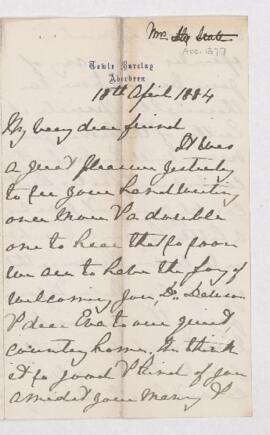 Mrs
ACC. 1377
Towie Barclay
Aberdeen
18th April 1884
My very dear friend
It was
a great pleasure yesterday
to see your handwriting
once more & a double
one to hear that so soon
we are to have the joy of
welcoming you, Dr. Dawson
& dear Eva to our quiet
country home. We think
it so good & kind of you
amidst your many &